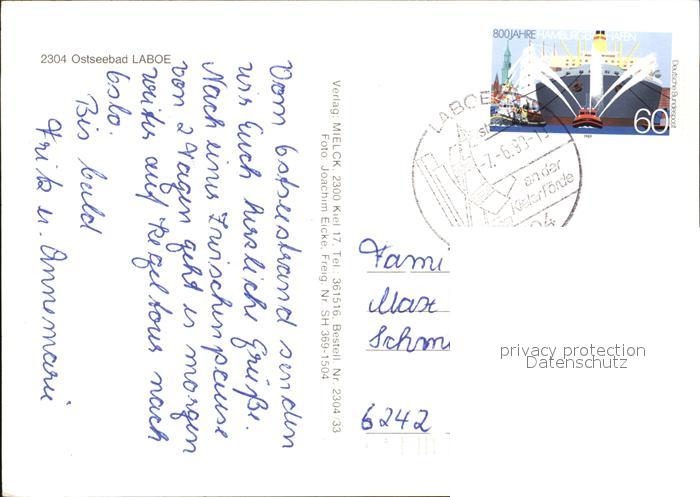 2304 Ostseebad LABOE
Vom Ostseestrand senden
wir Euch herzliche Grüße.
Nach einer Zwischenpause
von 2 Tagen geht es morgen
weiter auf Kegeltour nach
Oslo.
Bis bald
Fritz u. Annemarie
Verlag: MIELCK, 2300 Kiel 17, Tel: 361516, Bestell. Nr. 2304/33
Foto: Joachim Eicke, Freig. Nr. SH 369-1504
800 JAHRE HAMBURGER HAFEN
Deutsche Bundespost
60
1989
LABOE
-7.-6.90-1
an der
Kieler Förde
04
Fami
Max
Schm
6242
privacy protection
Datenschutz